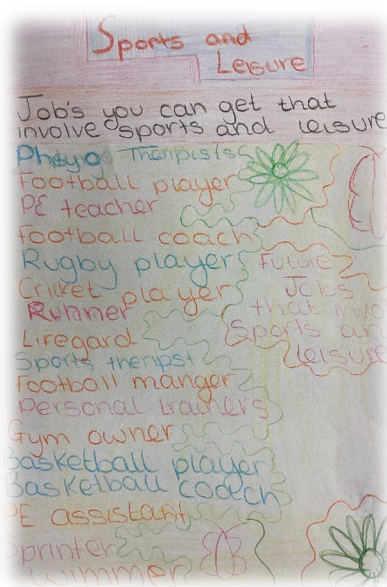 Sports and
Leisure
Job's you can get that
involve sports and leisure
Phsyo Theripists
Football player
PE teacher
Football coach
Rugby player
Cricket player
Runner
Liregard
Sports theripst
Football manger
Personal trainers
Gym owner
Basketball player
Basketball coach
PE assistant
Sprinter
wimmer
Future
Jobs
that invo
Sports an
leisure